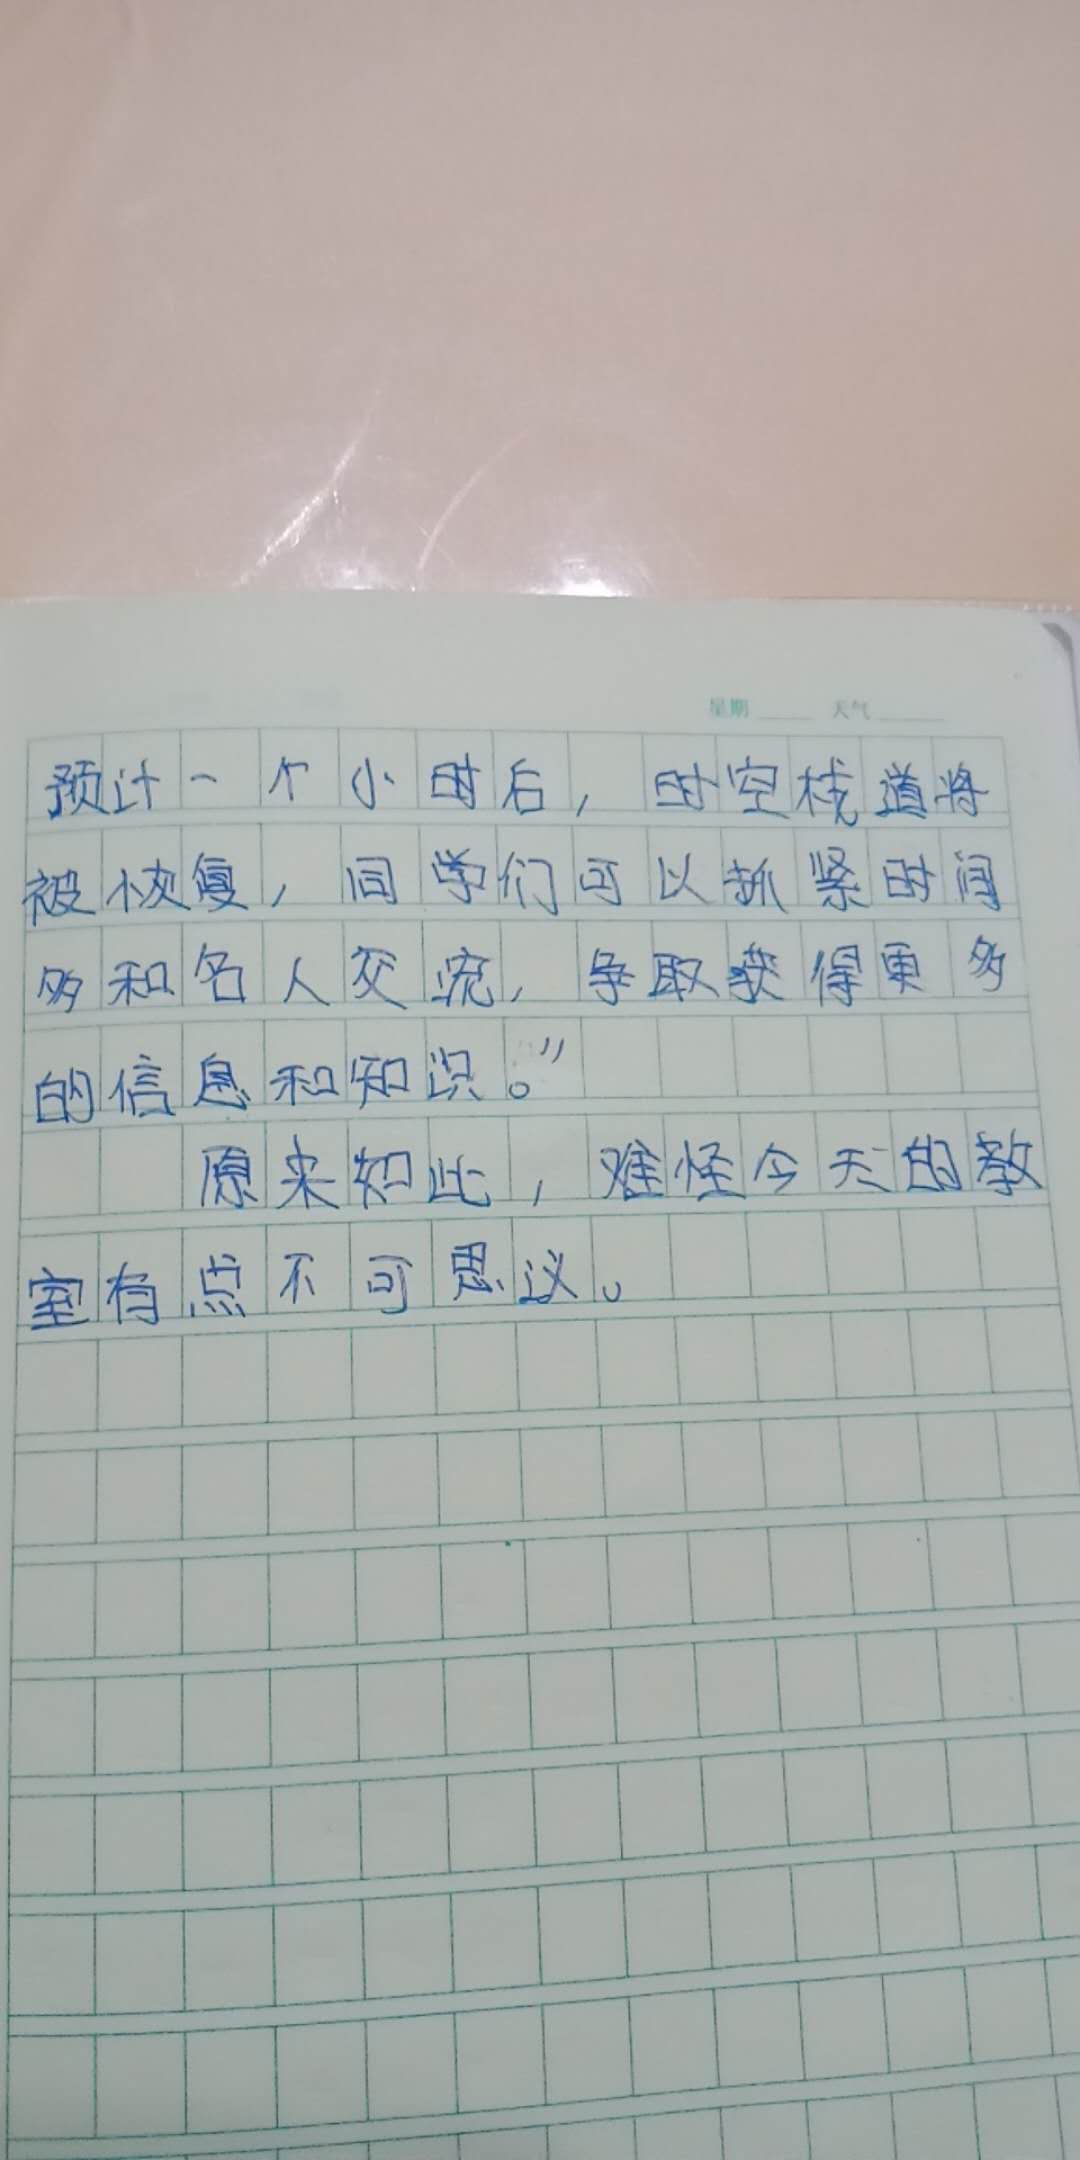 星期 天气
预计一个小时后，时空栈道将
被恢复，同学们可以抓紧时间
多和名人交流，争取获得更多
的信息和知识。”
原来如此，难怪今天的教
室有点不可思议。